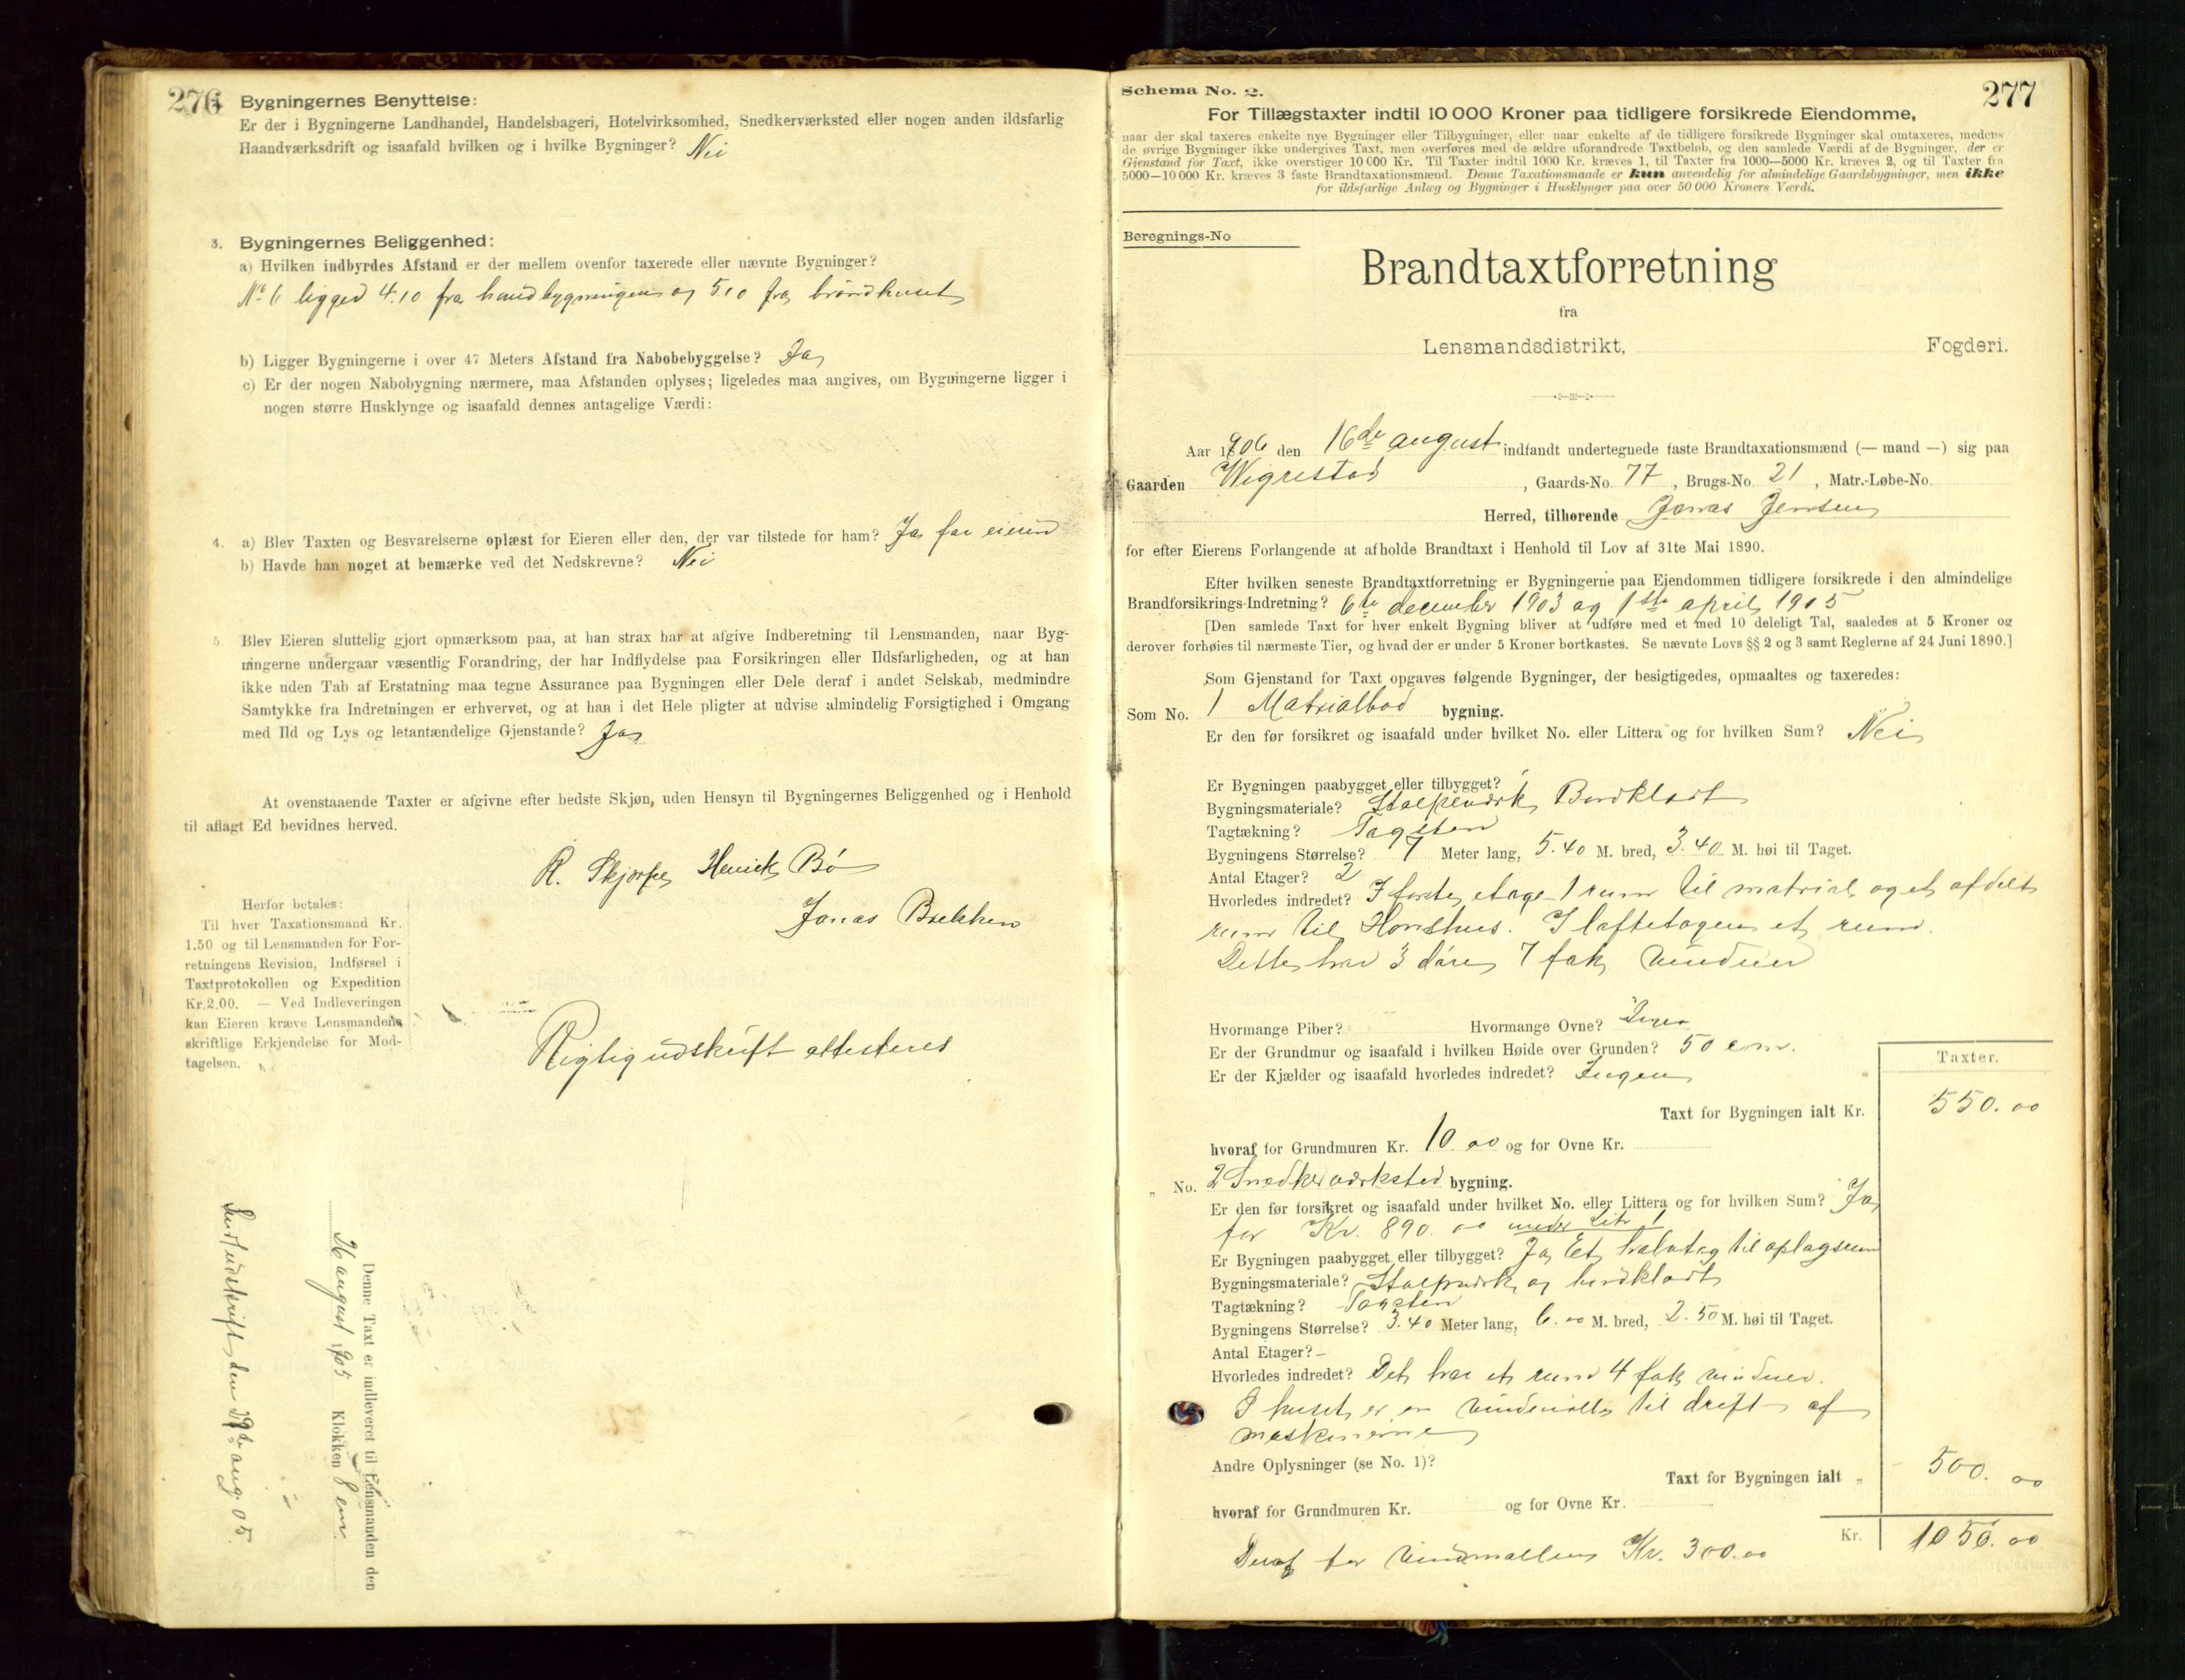 276
Bygningernes Benyttelse:
Er der i Bygningerne Landhandel, Handelsbageri, Hotelvirksomhed, Snedkerværksted eller nogen anden ildsfarlig
Haandværksdrift og isaafald hvilken og i hvilke Bygninger? Nei
3. Bygningernes Beliggenhed:
a) Hvilken indbyrdes Afstand er der mellem ovenfor taxerede eller nævnte Bygninger?
No 6 ligger 4.10 fra og 5.10 fra
b) Ligger Bygningerne i over 47 Meters Afstand fra Nabobebyggelse? Ja
c) Er der nogen Nabobygning nærmere, maa Afstanden oplyses; ligeledes maa angives, om Bygningerne ligger i
nogen større Husklynge og isaafald dennes antagelige Værdi:
4. a) Blev Taxten og Besvarelserne oplæst for Eieren eller den, der var tilstede for ham? Ja for
b) Havde han noget at bemærke ved det Nedskrevne? Nei
5. Blev Eieren sluttelig gjort opmærksom paa, at han strax har at afgive Indberetning til Lensmanden, naar Byg-
ningerne undergaar væsentlig Forandring, der har Indflydelse paa Forsikringen eller Ildsfarligheden, og at han
ikke uden Tab af Erstatning maa tegne Assurance paa Bygningen eller Dele deraf i andet Selskab, medmindre
Samtykke fra Indretningen er erhvervet, og at han i det Hele pligter at udvise almindelig Forsigtighed i Omgang
med Ild og Lys og letantændelige Gjenstande? Ja
At ovenstaaende Taxter er afgivne efter bedste Skjøn, uden Hensyn til Bygningernes Beliggenhed og i Henhold
til aflagt Ed bevidnes herved.
R. Skjorpe Henrik Bø
Jonas Brekken
Herfor betales:
Til hver Taxationsmand Kr.
1.50 og til Lensmanden for For-
retningens Revision, Indførsel i
Taxtprotokollen og Expedition
Kr.2.00. — Ved Indleveringen
kan Eieren kræve Lensmandens
skriftlige Erkjendelse for Mod-
tagelsen.
Rigtig udskrift attesteres
Denne Taxt er indleveret til Lensmanden den
26 august 1905 Klokken 8 em
udskrift den 29de aug. 05
Schema No. 2.
277
For Tillægstaxter indtil 10 000 Kroner paa tidligere forsikrede Eiendomme,
naar der skal taxeres enkelte nye Bygninger eller Tilbygninger, eller naar enkelte af de tidligere forsikrede Bygninger skal omtaxeres, medens
de øvrige Bygninger ikke undergives Taxt, men overføres med de ældre uforandrede Taxtbeløb, og den samlede Værdi af de Bygninger, der er
Gjenstand for Taxt, ikke overstiger 10 000 Kr. Til Taxter indtil 1000 Kr. kræves 1, til Taxter fra 1000—5000 Kr. kræves 2, og til Taxter fra
5000—10 000 Kr. kræves 3 faste Brandtaxationsmænd. Denne Taxationsmaade er kun anvendelig for almindelige Gaardsbygninger, men ikke
for ildsfarlige Anlæg og Bygninger i Husklynger paa over 50 000 Kroners Værdi.
Beregnings-No
Brandtaxtforretning
fra
Lensmandsdistrikt, Fogderi.
Aar 1906 den 16de august indfandt undertegnede faste Brandtaxationsmænd (— mand —) sig paa
Gaarden Wigrestad, Gaards-No. 77, Brugs-No. 21, Matr.-Løbe-No.
Herred, tilhørende Jonas Jensen
for efter Eierens Forlangende at afholde Brandtaxt i Henhold til Lov af 31te Mai 1890.
Efter hvilken seneste Brandtaxtforretning er Bygningerne paa Ejendommen tidligere forsikrede i den almindelige
Brandforsikrings-Indretning? 6te december 1903 og 1ste april 1905
[Den samlede Taxt for hver enkelt Bygning bliver at udføre med et med 10 deleligt Tal, saaledes at 5 Kroner og
derover forhøies til nærmeste Tier, og hvad der er under 5 Kroner bortkastes. Se nævnte Lovs §§ 2 og 3 samt Reglerne af 24 Juni 1890.]
Som Gjenstand for Taxt opgaves følgende Bygninger, der besigtigedes, opmaaltes og taxeredes:
Som No. 1 Matrialbod bygning.
Er den før forsikret og isaafald under hvilket No. eller Littera og for hvilken Sum? Nei
Er Bygningen paabygget eller tilbygget?
Bygningsmateriale? Stolpeværk Bordklædt
Tagtækning? Tagsten
Bygningens Størrelse? 7 Meter lang, 5.40 M. bred, 3.40 M. høi til Taget.
Antal Etager? 2
Hvorledes indredet? I første etage 1 rum til matrial og et afdelt
rum til Hønshus. I loftetagen et rum.
Dette har 3 døre 7 fak vinduer
Hvormange Piber? Hvormange Ovne? Ingen
Er der Grundmur og isaafald i hvilken Høide over Grunden? 50 cm.
Er der Kjælder og isaafald hvorledes indredet? Ingen
Taxter.
Taxt for Bygningen ialt Kr. 550.00
hvoraf for Grundmuren Kr. 10.00 og for Ovne Kr.
„ No. 2 Snedkerværksted bygning.
Er den før forsikret og isaafald under hvilket No. eller Littera og for hvilken Sum? Ja
for Kr. 890.00 under Litr 1
Er Bygningen paabygget eller tilbygget? Ja Et halvtag til oplagsrum
Bygningsmateriale? Stolpværk og bordklædt
Tagtækning? Tagsten
Bygningens Størrelse? 3.40 Meter lang, 6.00 M. bred, 2.50 M. høi til Taget.
Antal Etager? –
Hvorledes indredet? Det har et rum 4 fak vinduer.
I huset er en vindmølle til drift af
maskinerne
Andre Oplysninger (se No. 1)?
Taxt for Bygningen ialt „ 500.00
hvoraf for Grundmuren Kr. og for Ovne Kr.
Kr. 1050.00
Deraf for vindmøllen Kr. 300.00